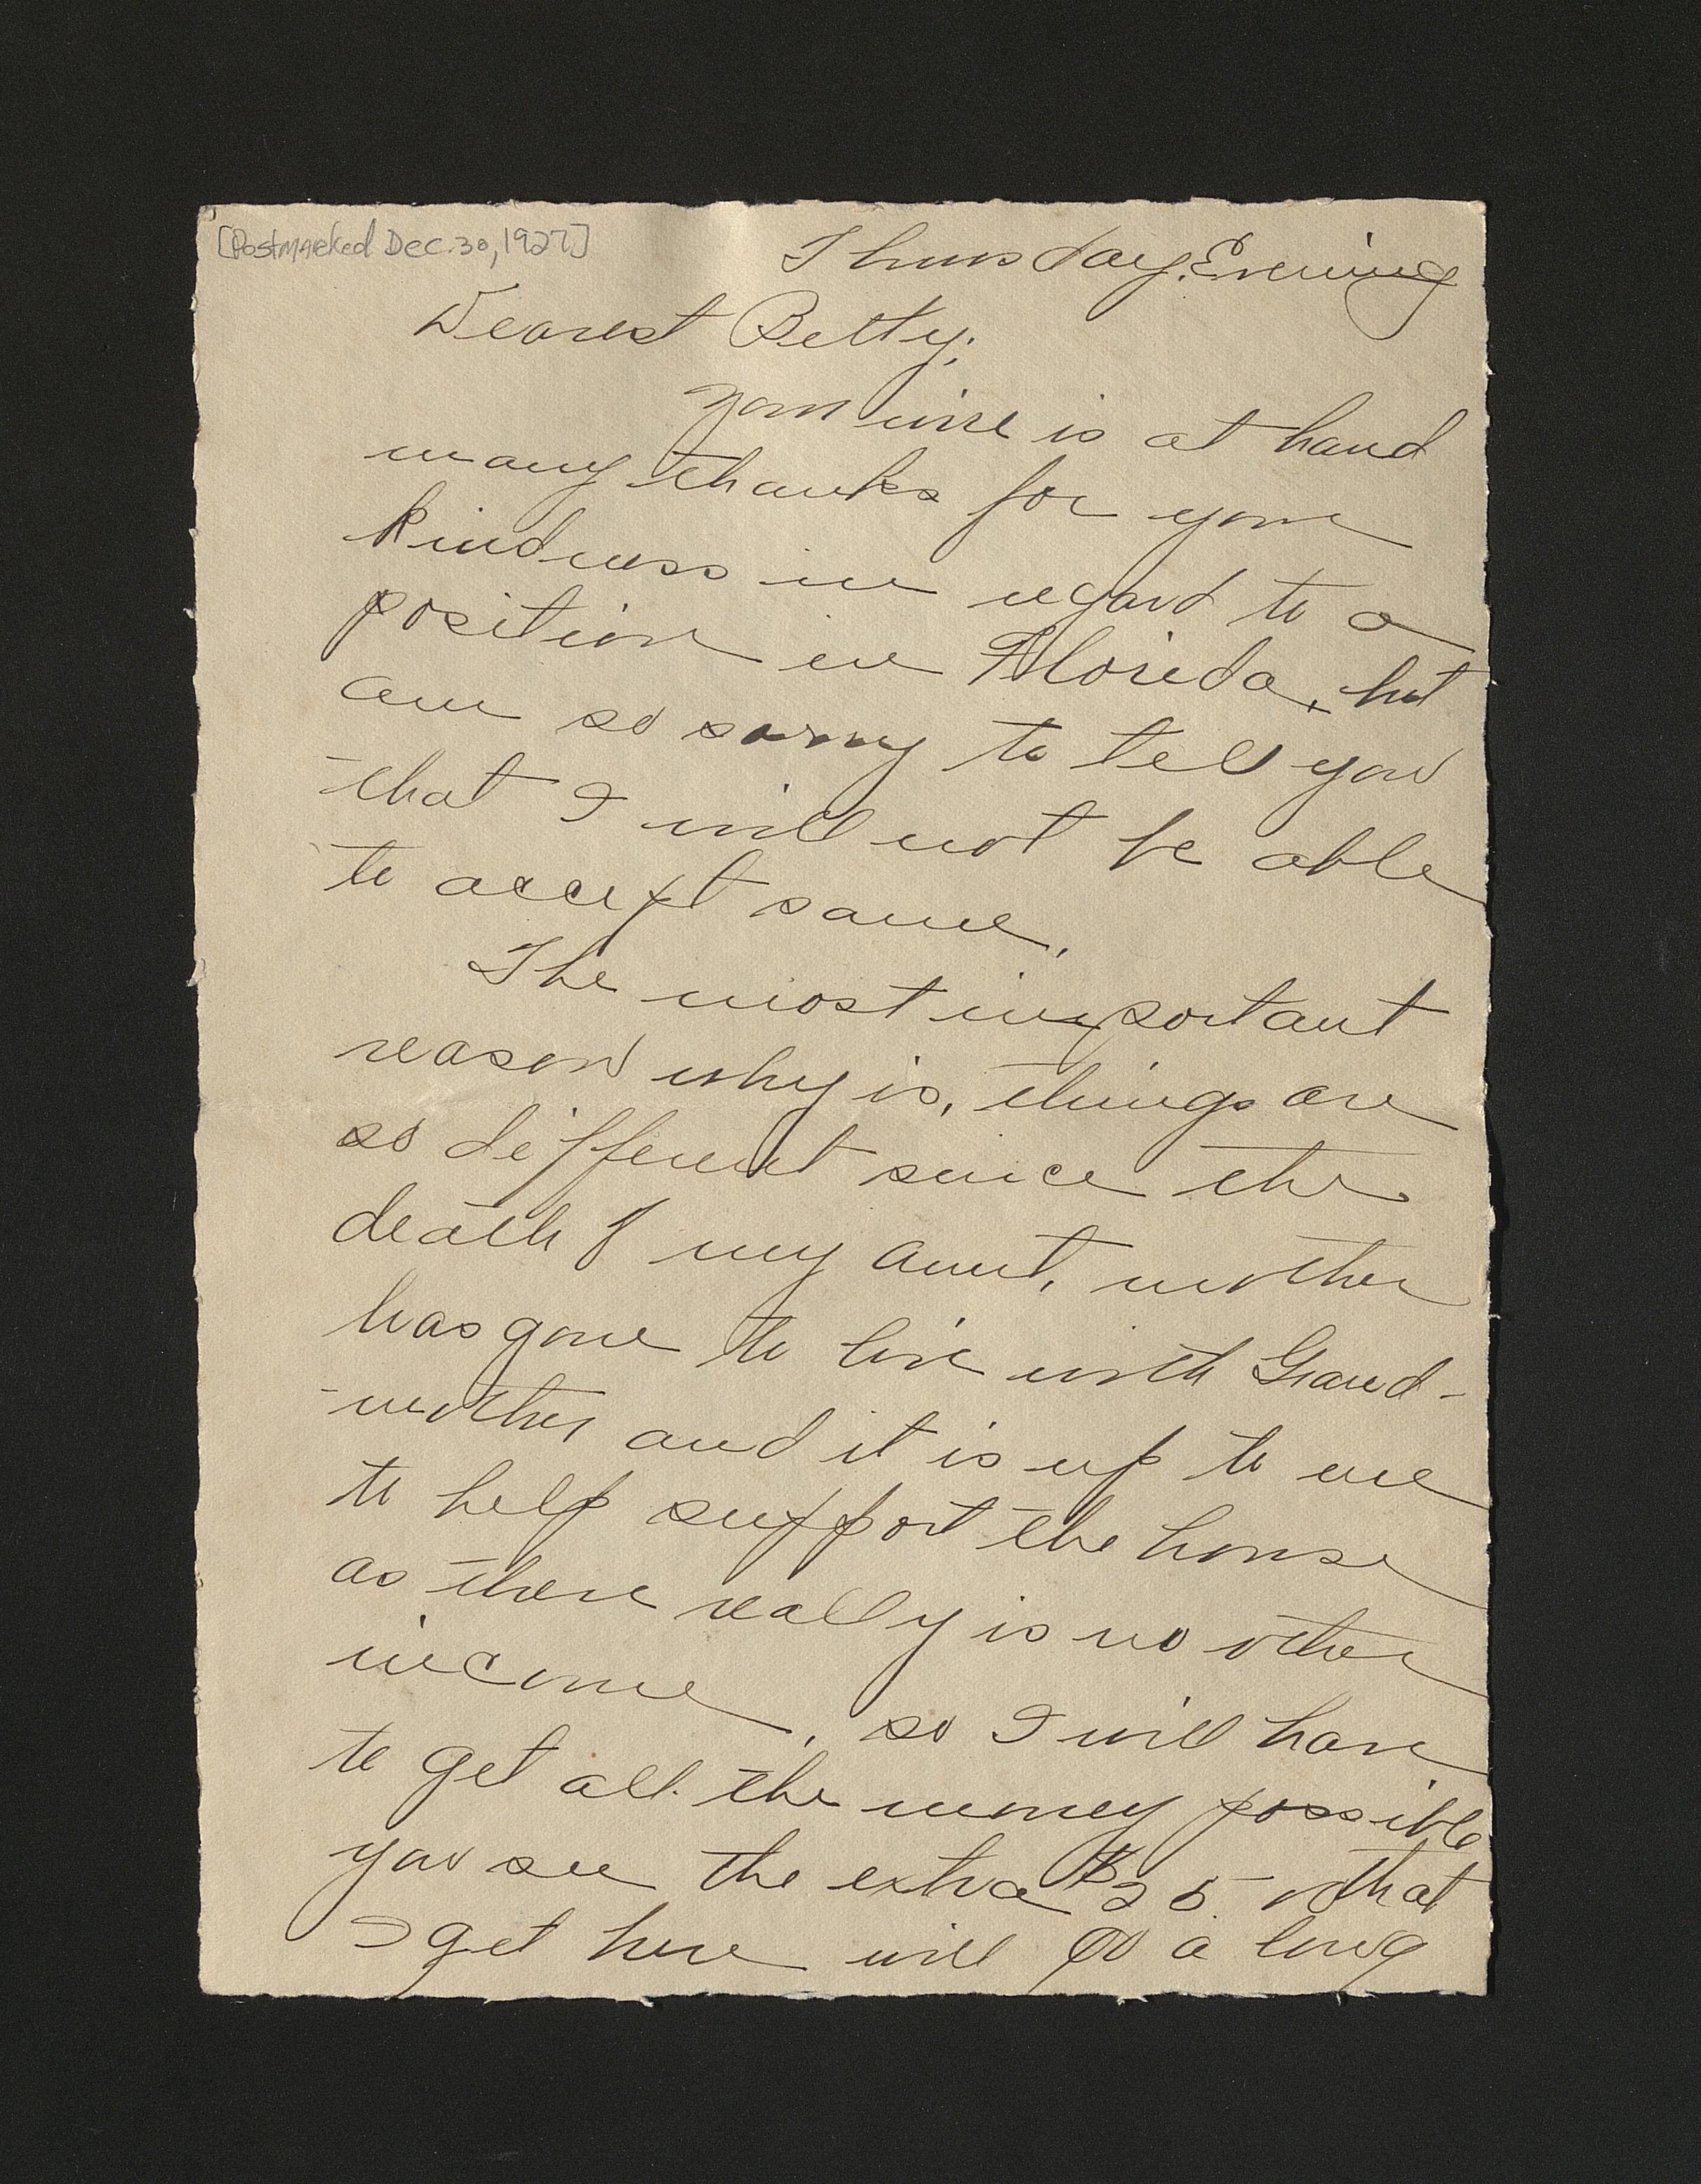 [Postmarked Dec. 30, 1927]
Thursday. Evening
Dearest Betty;
Your wire is at hand
many thanks for your
kindness in regard to a
position in Florida, but
am so sorry to tell you
that I will not be able
to accept same.
The most important
reason why is, things are
so different since the
death of my aunt, mother
has gone to live with Grand-
-mother and it is up to me
to help support the house
as there really is no other
income, so I will have
to get all the money possible
you see the extra $25 that
I get here will go a long